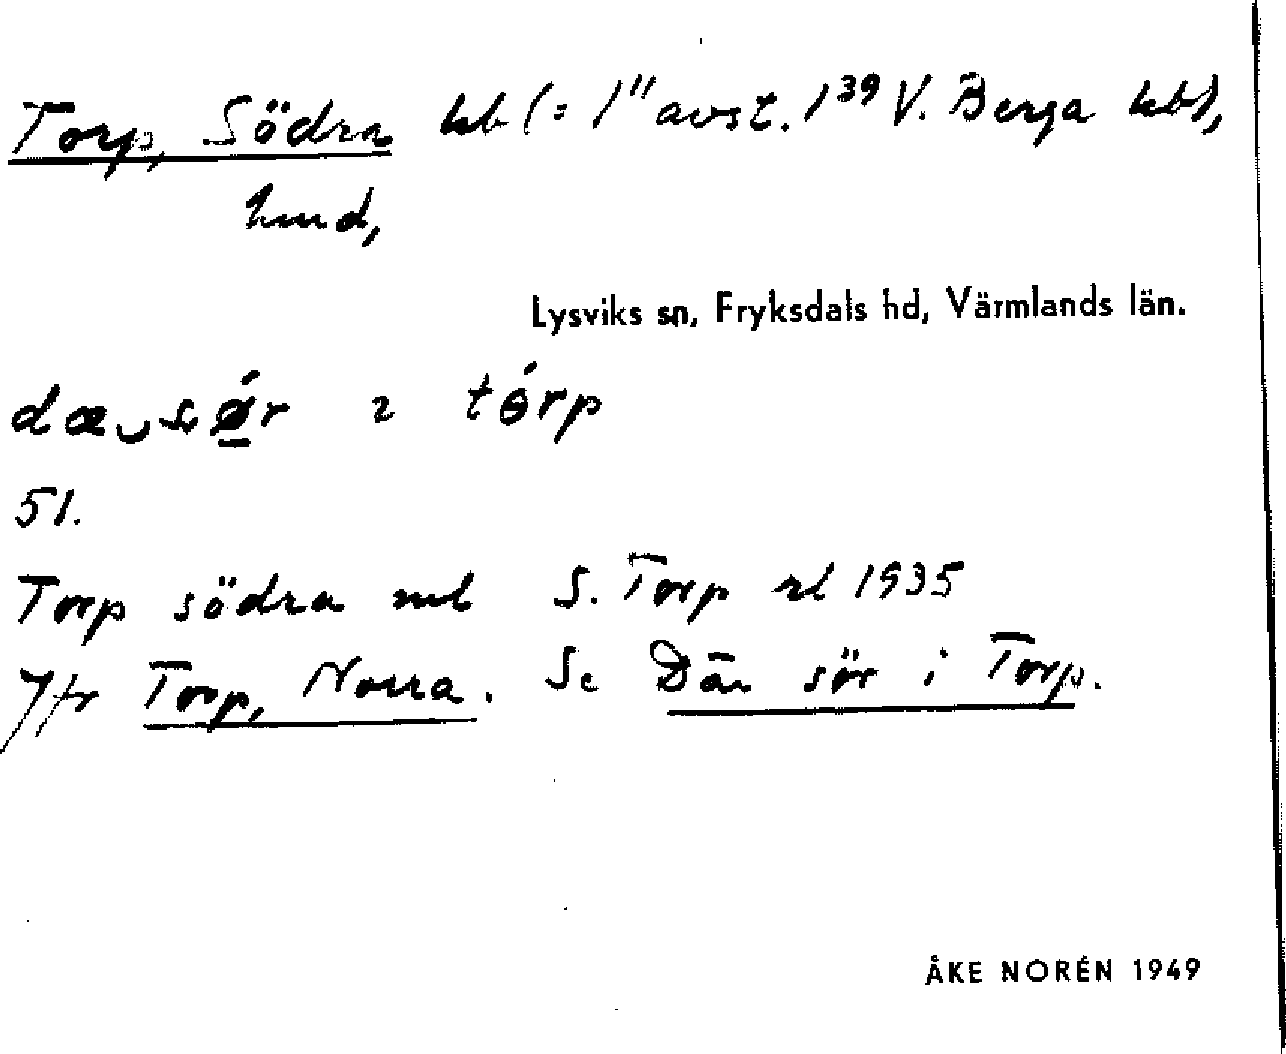 Torp, Södra hb (= 1¹¹ avst. 1³⁹ V. Berga hb),
hmd,
Lysviks sn, Fryksdals hd, Värmlands län.
dæ‿sǿr ɩ tórp
51.
Torp södra ml S. Torp rl 1935
Jfr Torp, Norra. Se Där sör i Torp.
ÅKE NORÉN 1949